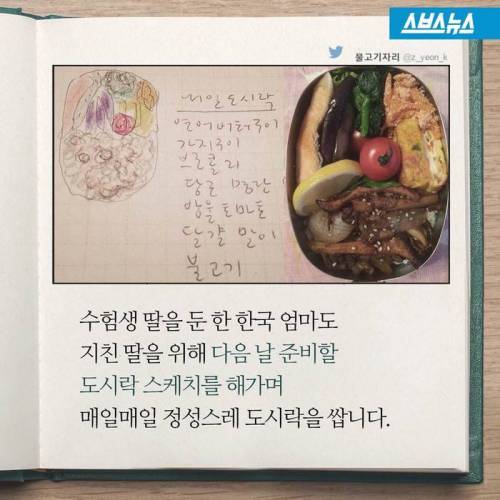 스브스뉴스
물고기자리 @z_yeon_k
내일 도시락
연어버터구이
가지구이
브로콜리
당근 명란
방울토마토
달걀 말이
불고기
수험생 딸을 둔 한 한국 엄마도
지친 딸을 위해 다음 날 준비할
도시락 스케치를 해가며
매일매일 정성스레 도시락을 쌉니다.